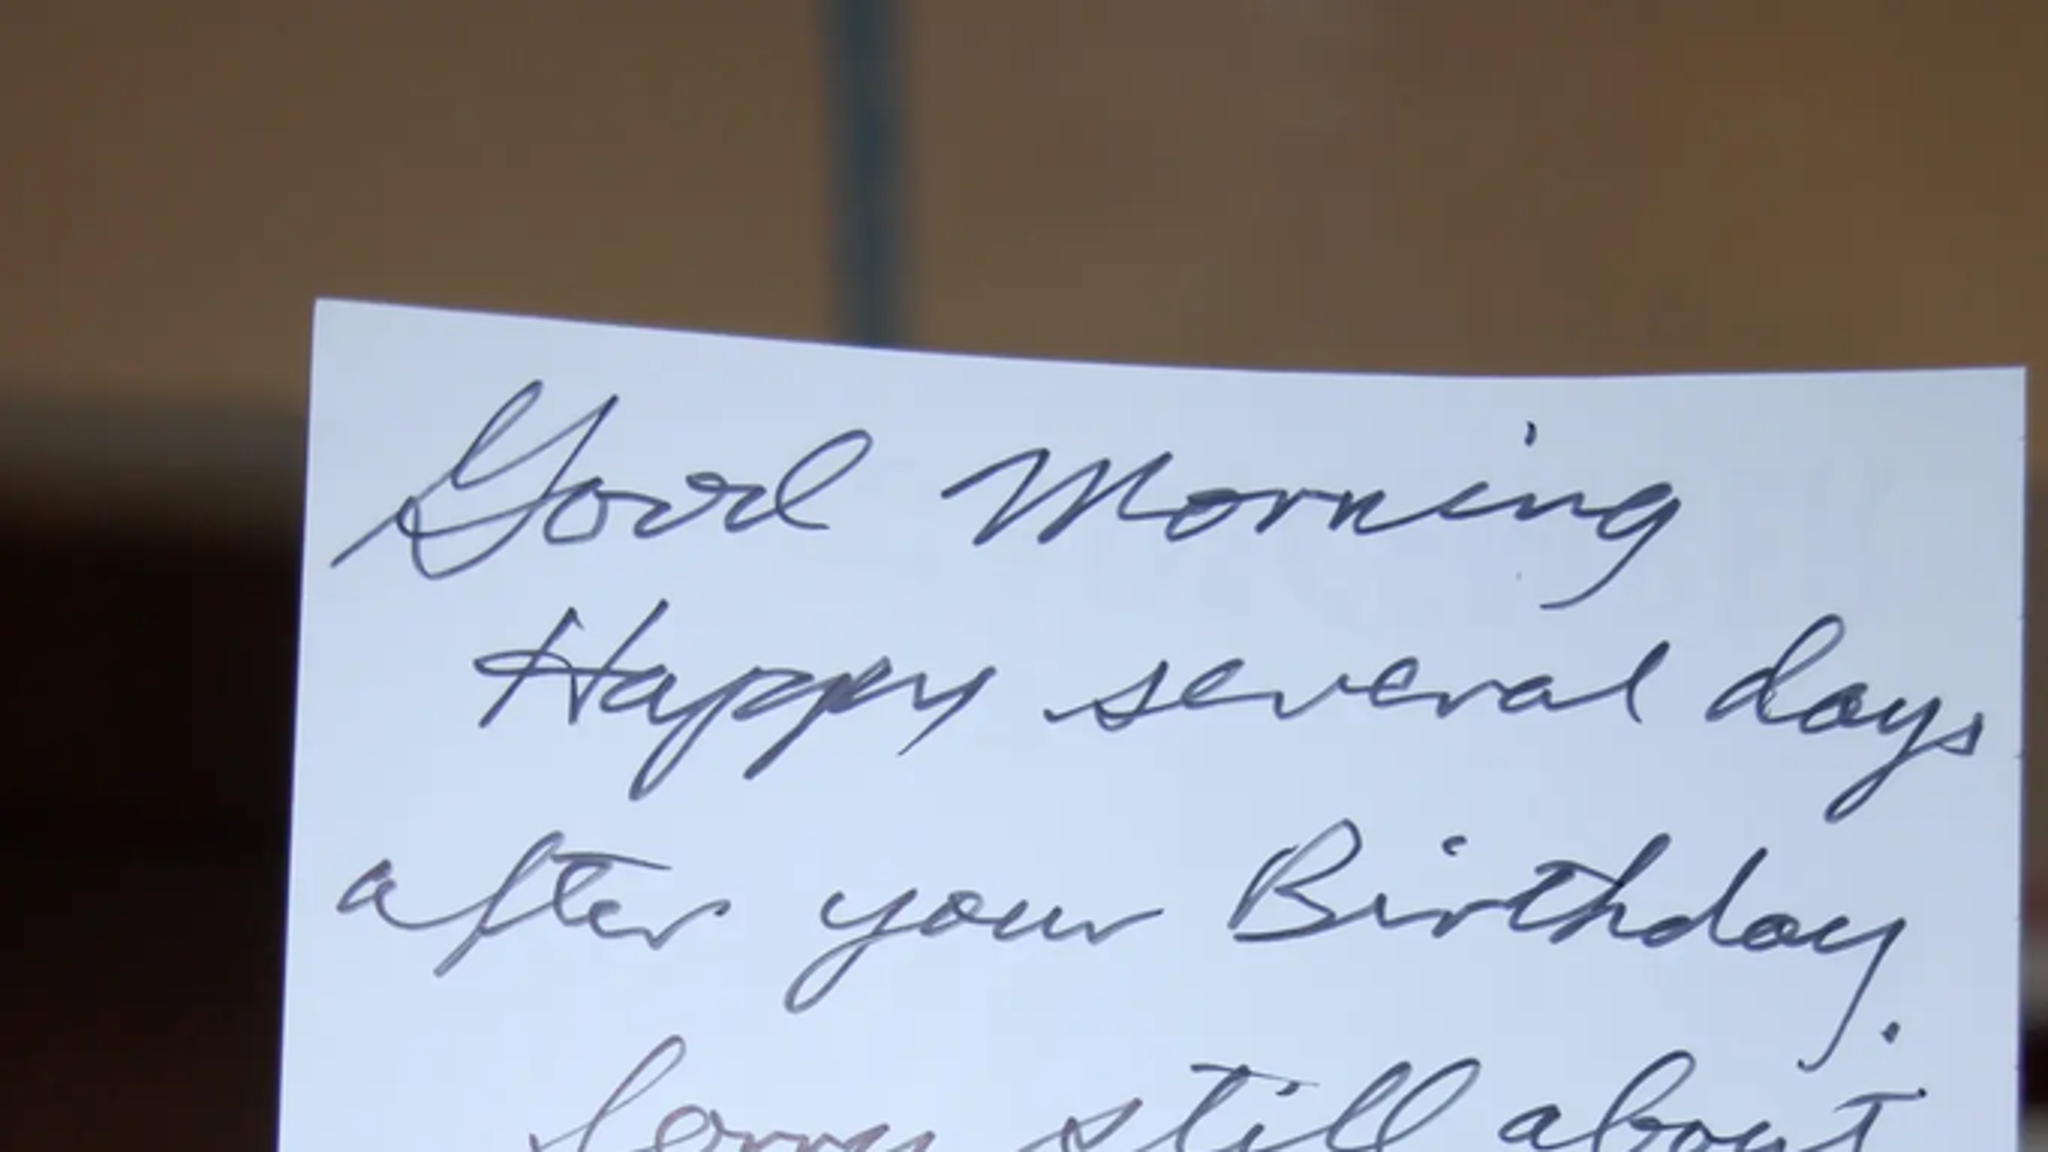 Good Morning
Happy several days
after your Birthday.
Sorry still about